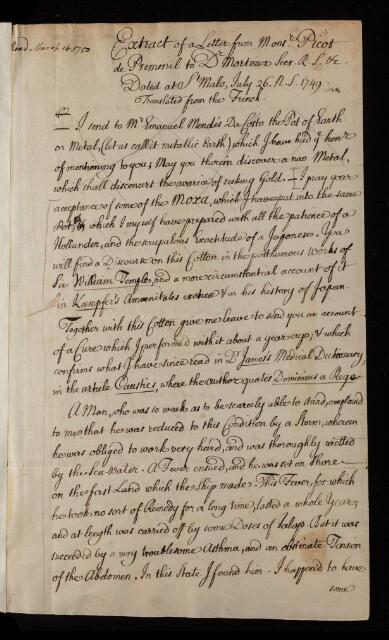 Read March 14. 1750
Extract of a Letter from Monsr. Picot
de Premenil to Dr. Mortimer Secr. R. S. &c.
Dated at St. Malo, July 26. N.S. 1749.
Translated from the French.
I send to Mr. Emanuel Mendes Da Costa the Pot of Earth
or Metal, (let us call it metallic Earth), which I have had ye honr.
of mentioning to you; May you therein discover a new Metal,
which shall disconcert the avarice of seeking Gold. — I pray your
acceptance of some of the Moxa, which I have put into the same
Pot, & which I myself have prepared with all the patience of a
Hollander, and the scrupulous Exactitude of a Japonese. You
will find a Discourse on this Cotton in the posthumous Works of
Sir William Temple, and a more circumstantial account of it
in Kæmpfer's Amoenitates exoticæ & in his history of Japan.
Together with this Cotton give me leave to send you an account
of a Cure which I performed with it about a year ago; & which
confirms what I have since read in Dr. James's Medical Dictionary,
in the article Caustics, where the author quotes Dominicus a Rege.
A Man, who was so weak as to be scarcely able to stand, complaind
to me that he was reduced to this Condition by a Storm, wherein
he was obliged to work very hard, and was thoroughly wetted
by the Sea-water. A Fever ensued, and he was set on Shore
on the first Land which the Ship made. This Fever, for which
he took no sort of Remedy for a long time, lasted a whole Year;
and at length was carried off by some Doses of Jalap. But it was
succeeded by a very troublesome Asthma, and an obstinate Tension
of the Abdomen. In this State I found him. I happend to have
some